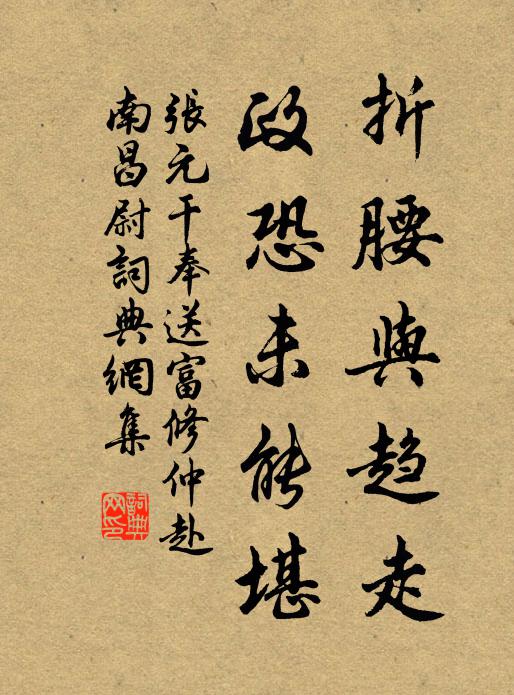 折腰與趋走
政恐未能堪
張元干奉送富修仲赴
南昌尉詞典網集
詞典网印